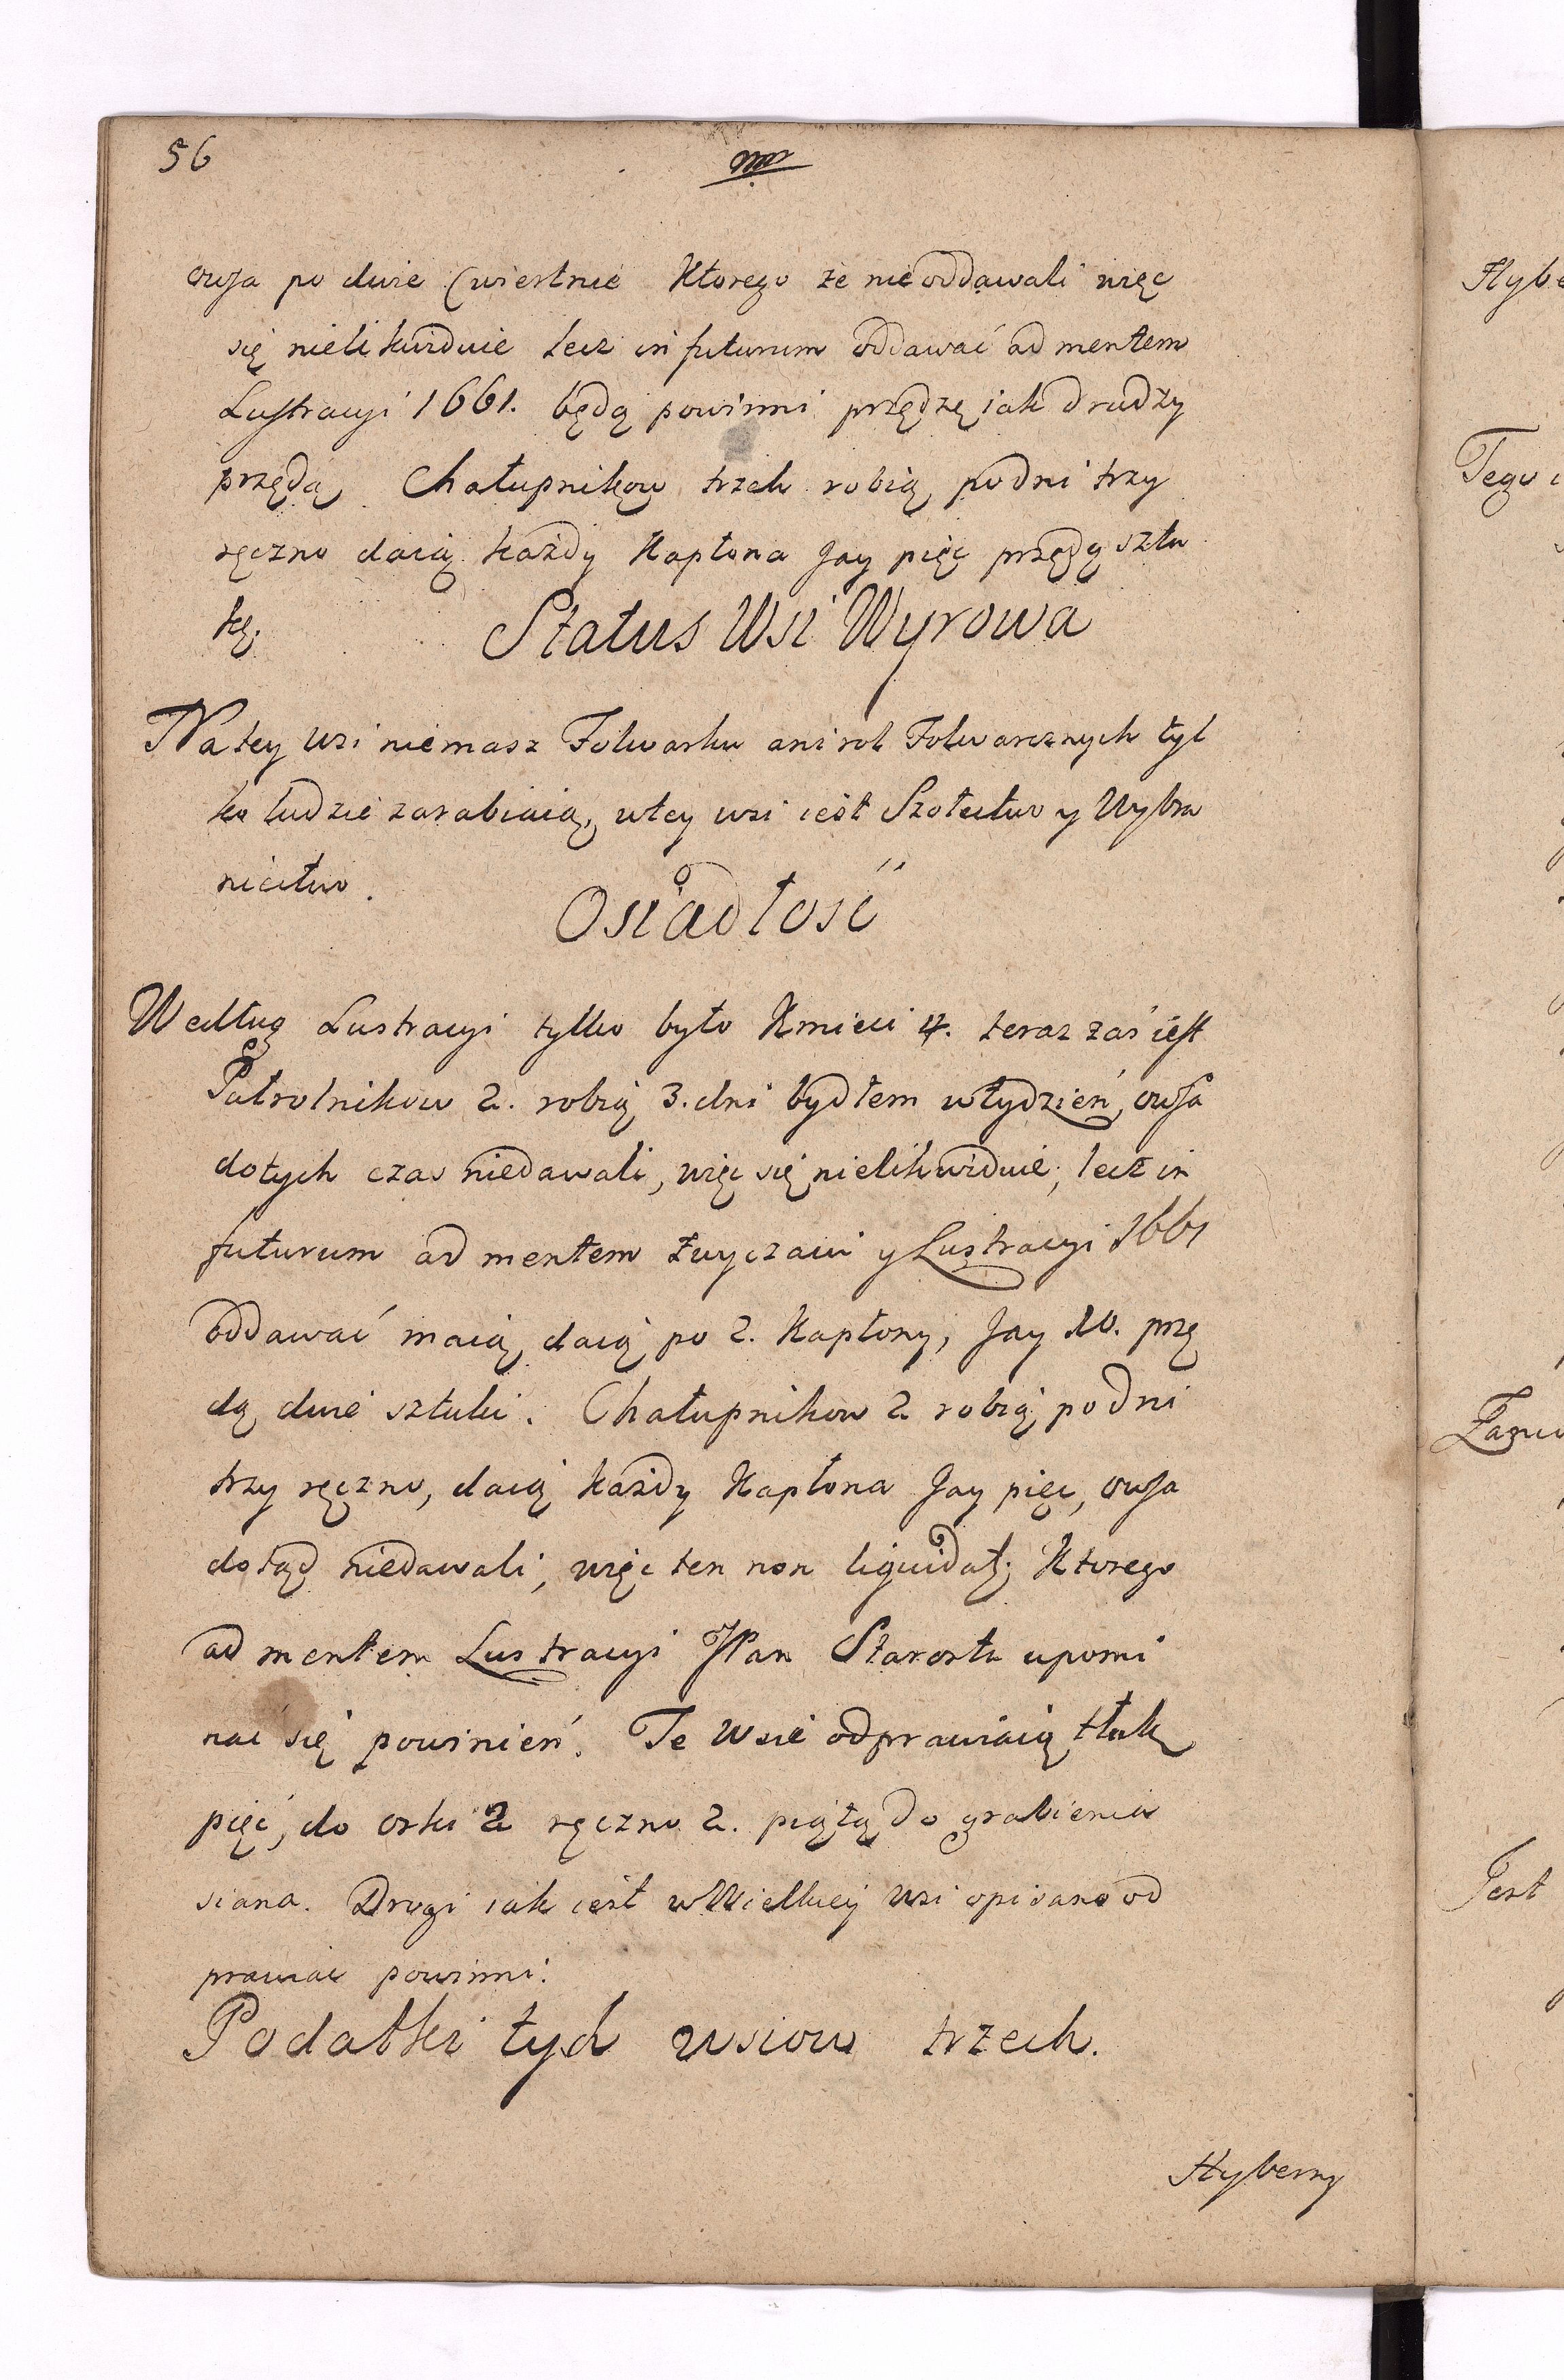 56
owsa po dwie Cwiertnie Ktorego że nieoddawali więc
się nielikwiduie lecz in futurum oddawać ad mentem
Lustracyi 1661. będą powinni przędzę iak drudzy
przędą, Chałupnikow trzech robią po dni trzy
ręczno daią każdy Kapłona Jay pięć przędą sztu
kę.
Status Wsi Wyrowa
Na tey wsi niemasz Folwarku ani rol Folwarcznych tyl
ko ludzie zarabiaią, w tey wsi iest Szołectwo y Wybra
niectwo.
Osiadłość
Według Lustracyi tylko było Kmieci 4. teraz zaś iest
Pułrolnikow 2. robią 3. dni bydłem w tydzień, owsa
dotych czas niedawali, więc się nielikwiduie, lecz in
futurum ad mentem zwyczaiu y Lustracyi 1661
oddawać maią, daią po 2. Kapłony, Jay 10. przę
dą dwie sztuki. Chałupnikow 2 robią po dni
trzy ręczno, daią każdy Kapłona Jay pięć, owsa
dotąd niedawali, więc ten non liquidat; Ktorego
ad mentem Lustracyi JPan Starosta upomi
nać się powinień. Te Wsie odprawiaią tłuk
pięć, do orki 2 ręczno 2. piątą do grabienia
siana. Drugi iak iest w Wielkiey wsi opisano od
prawiać powinni.
Podatki tych wsiow trzech.
Hyberny